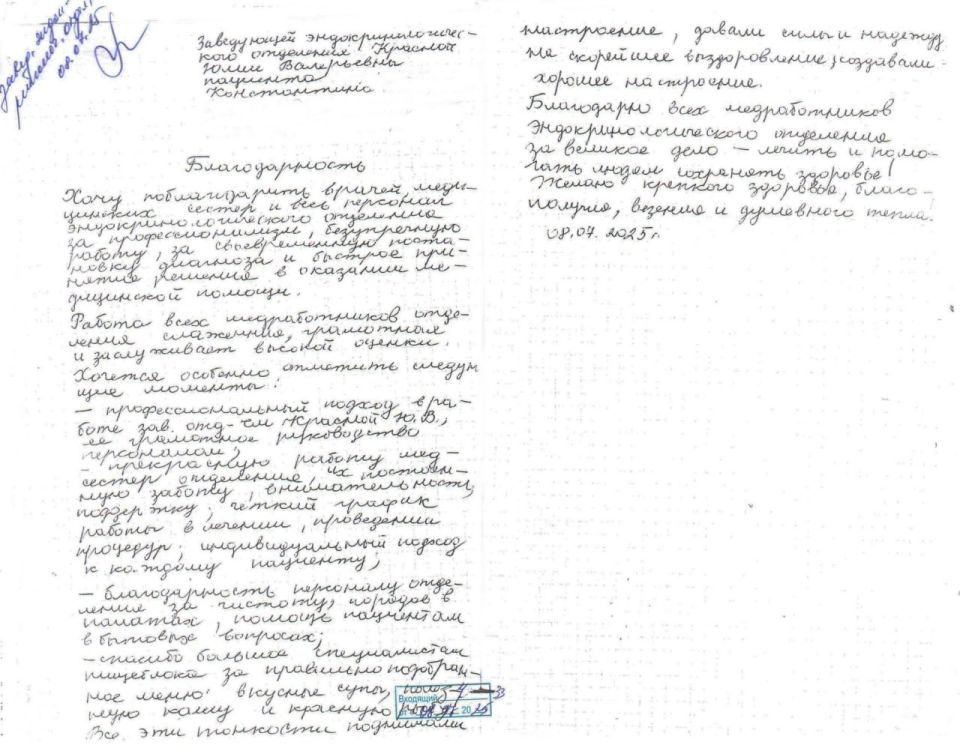 завер. эндок-
08.07.25
Заведующей эндокринологичес-
кого отделения Красной
Юлии Валерьевны
пациента
Константина
Благодарность
Хочу поблагодарить врачей, меди-
цинских сестер и весь персонал
эндокринологического отделения
за профессионализм, безупречную
работу, за своевременную поста-
новку диагноза и быстрое при-
нятие решения в оказании ме-
дицинской помощи.
Работа всех медработников отде-
ления слаженная, грамотная
и заслуживает высокой оценки.
Хочется особенно отметить следую
щие моменты:
— профессиональный подход в ра-
боте зав. отд-ем Красной Ю.В.,
ее грамотное руководство
персоналом;
- прекрасную работу мед-
сестер отделения, их постоян-
ную заботу, внимательность,
поддержку, четкий график
работы в лечении, проведении
процедур, индивидуальный подход
к каждому пациенту;
— благодарность персоналу отде-
ления за чистоту, порядок в
палатах, помощь пациентам
в бытовых вопросах;
— спасибо большое специалистам
пищеблока за правильно подобран-
ное меню: вкусные супы, полез-
ную кашу и красную рыбу.
Входящий 4-33
от 08 07 2025
Все эти тонкости поднимали
настроение, давали силы и надежду
на скорейшее выздоровление, создавали
хорошее настроение.
Благодарю всех медработников
эндокринологического отделения
за великое дело — лечить и помо-
гать людям сохранять здоровье!
Желаю крепкого здоровья, благо-
получия, везения и душевного тепла.
08.07.2025г.